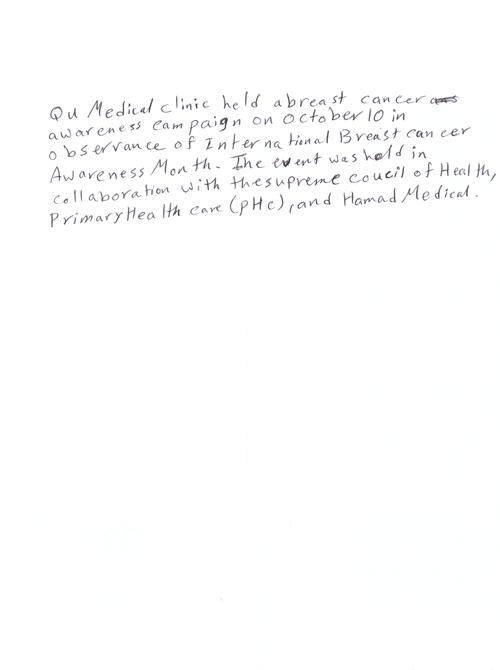 Qu Medical clinic held abreast cancer
awareness campaign on October 10 in
observance of International Breast cancer
Awareness Month. The event was held in
collaboration with thesupreme coucil of Health,
Primary Health care (pHc), and Hamad Medical.